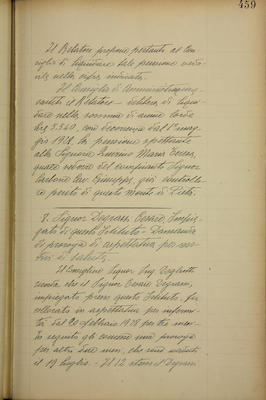 459
Il Relatore propone pertanto al Con-
siglio di liquidare tale pensione vedo-
vile nella cifra indicata.
Il Consiglio di Amministrazione,
udito il Relatore - delibera di liqui-
dare nella somma di annue lorde
L. 3.360, con decorrenza dal 1° mag-
gio 1918, la pensione spettante
alla Signora Maria
quale vedova del Signor
Cav. Giuseppe, già controllo-
re presso di questo Monte di Pietà.
8. Signor Degrassi Cesare, Impie-
gato di questo Istituto - Domanda
di proroga di aspettativa per mo-
tivi di salute.
Il Consigliere Signor Ing.
conta che il Signor Cesare Degrassi,
impiegato presso questo Istituto, fu
collocato in aspettativa per infermi-
tà dal 20 febbraio 1918 per tre me-
si
per altri due mesi, che sono scaduti
il 19 luglio. - Il 12 il Degrassi